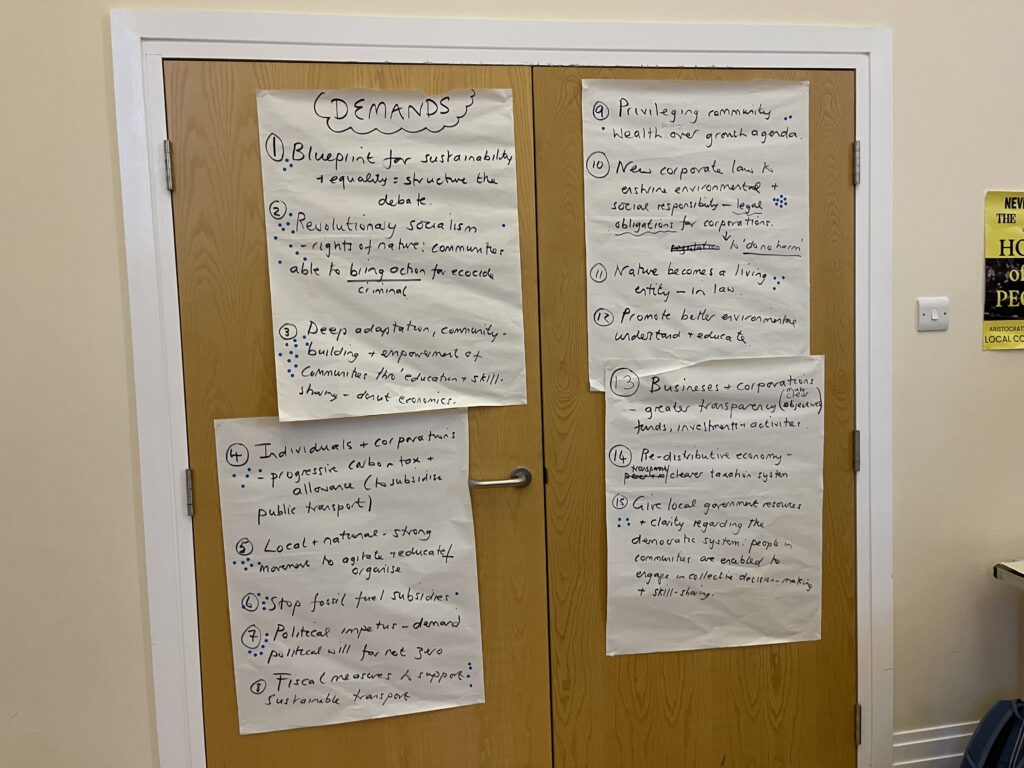 DEMANDS
① Blueprint for sustainability
+ equality = structure the
debate.
② Revolutionary socialism
- rights of nature: communities
able to bring action for ecocide
criminal
③ Deep adaptation, community-
building + empowerment of
communities thro' education + skill-
sharing - donut economics.
④ Individuals + corporations
- progressive carbon tax +
allowance (to subsidise
public transport)
⑤ Local + national - strong
movement to agitate + educate/
organise
⑥ Stop fossil fuel subsidies
⑦ Political impetus - demand
political will for net zero
⑧ Fiscal measures to support
sustainable transport
⑨ Privileging community
wealth over growth agenda.
⑩ New corporate law to
enshrine environmental +
social responsibility - legal
obligations for corporations.
to 'do no harm'
⑪ Nature becomes a living
entity - in law.
⑫ Promote better environmental
understand + educate.
⑬ Busineses + corporations
- greater transparency (make clear objectives)
funds, investments + activities.
⑭ Re-distributive economy -
clearer taxation system
⑮ Give local government resources
+ clarity regarding the
democratic system: people in
communities are enabled to
engage in collective decision-making
+ skill-sharing.
THE
HO
of
PEO
ARISTOCRAT
LOCAL CO